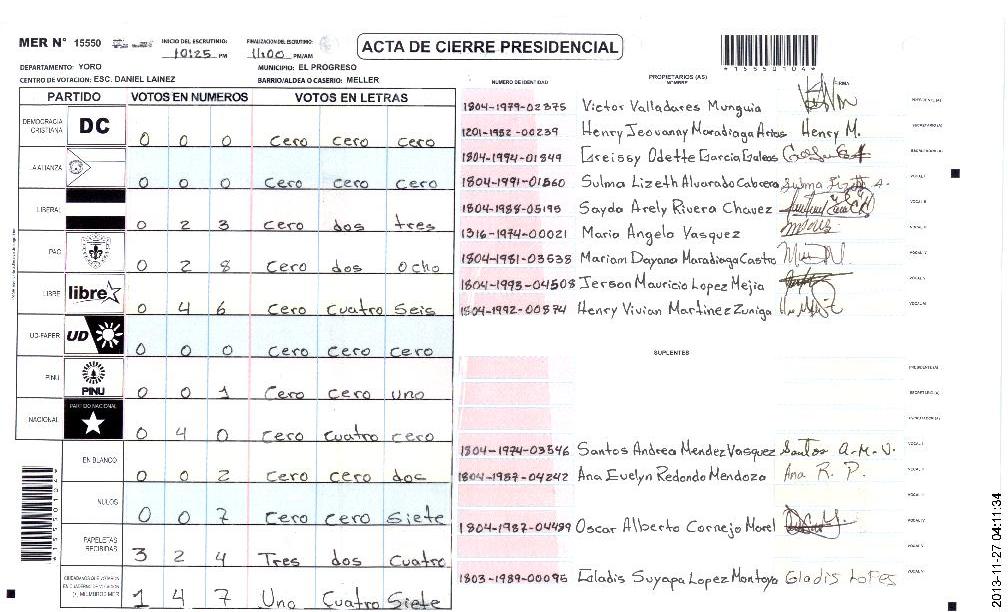 MER N° 15550
INICIO DEL ESCRUTINIO: 10:25 PM
FINALIZACION DEL ESCRUTINIO: 11:00 PM/AM
ACTA DE CIERRE PRESIDENCIAL
*15550104*
DEPARTAMENTO: YORO
MUNICIPIO: EL PROGRESO
CENTRO DE VOTACION: ESC. DANIEL LAINEZ
BARRIO/ALDEA O CASERIO: MELLER
PARTIDO VOTOS EN NUMEROS VOTOS EN LETRAS
DEMOCRACIA CRISTIANA DC 0 0 0 Cero Cero Cero
A.ALIANZA 0 0 0 Cero Cero Cero
LIBERAL 0 2 3 Cero dos tres
PAC 0 2 8 Cero dos Ocho
LIBRE libre 0 4 6 Cero Cuatro Seis
UD-FAPER UD 0 0 0 Cero Cero Cero
PINU PINU 0 0 1 Cero Cero uno
NACIONAL PARTIDO NACIONAL 0 4 0 Cero Cuatro cero
EN BLANCO 0 0 2 Cero Cero dos
NULOS 0 0 7 Cero Cero Siete
PAPELETAS RECIBIDAS 3 2 4 Tres dos Cuatro
CIUDADANOS QUE VOTARON EN CUADERNO DE VOTACION (+) MIEMBROS MER 1 4 7 Uno Cuatro Siete
NUMERO DE IDENTIDAD PROPIETARIOS (AS) NOMBRE FIRMA
1804-1979-02375 Victor Valladares Munguia
1201-1982-00239 Henry Jeovanny Maradiaga Arias Henry M.
1804-1994-01849 Greissy Odette Garcia Galeas
1804-1991-01560 Sulma Lizeth Alvarado Cabrera
1804-1988-05195 Sayda Arely Rivera Chavez
1316-1974-00021 Maria Angela Vasquez
1804-1981-03538 Mariam Dayana Maradiaga Castro
1804-1995-04508 Jerson Mauricio Lopez Mejia
1804-1992-00874 Henry Vivian Martinez Zuniga
SUPLENTES
1804-1974-03546 Santos Andrea Mendez Vasquez Santos A.M.V.
1804-1987-04242 Ana Evelyn Redondo Mendoza Ana R. P.
1804-1987-04489 Oscar Alberto Cornejo Morel
1803-1989-00095 Gladis Suyapa Lopez Montoya Gladis Lopes
2013-11-27 04:11:34